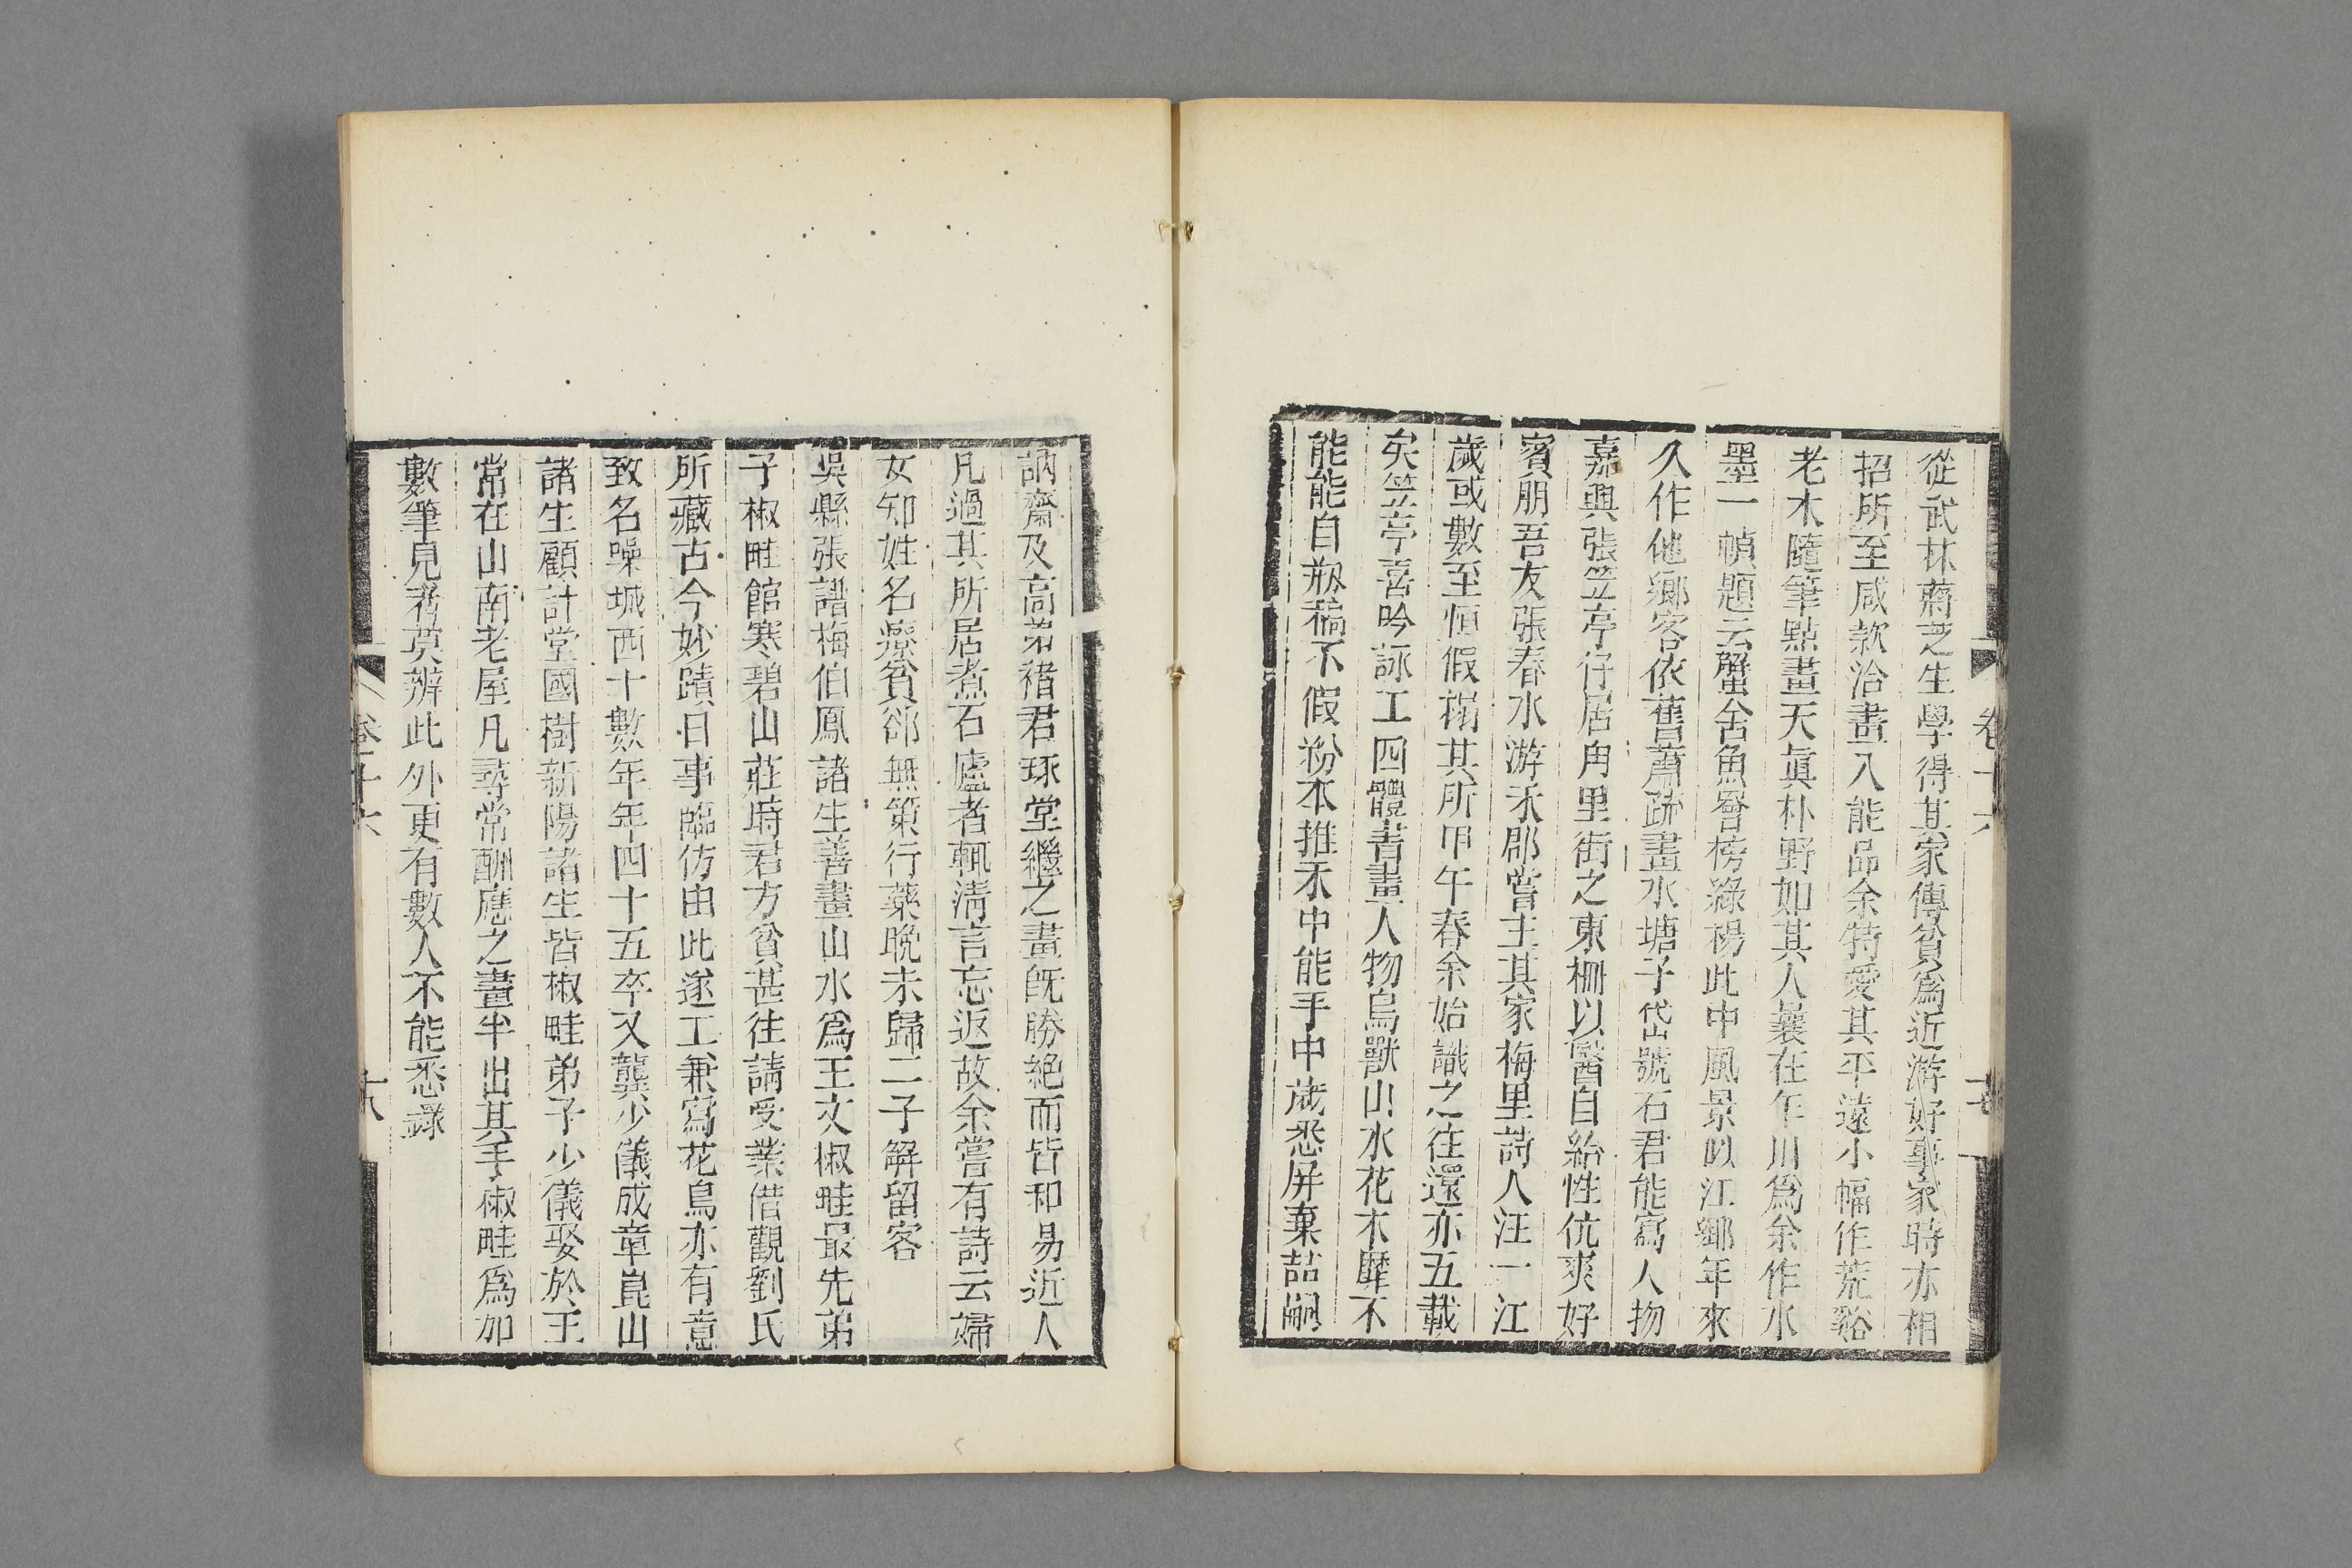 從武林蔣芝生學得其家傳貧爲近游好事家時亦相
招所至咸款洽畫入能品余特愛其平遠小幅作荒谿
老木隨筆點畫天眞朴野如其人曩在午川爲余作水
墨一幀題云蟹舍魚罾榜綠楊此中風景似江鄉年來
久作他鄉客依舊蕭疏畫水塘子岱號石君能寫人物
嘉興張笠亭仔居甪里街之東柵以醫自給性伉爽好
賓朋吾友張春水游禾郡嘗主其家梅里詩人汪一江
歲或數至恒假榻其所甲午春余始識之往還亦五載
矣笠亭喜吟詠工四體書畫人物鳥獸山水花木靡不
能能自剏稿不假粉本推禾中能手中歲悉屏棄喆嗣
卷十六
訥齋及高弟褚君琢堂繼之畫旣勝絕而皆和易近人
凡過其所居煮石廬者輒淸言忘返故余嘗有詩云婦
女知姓名癯貧卻無策行藥晩未歸二子解留客
吳縣張譜梅伯鳳諸生善畫山水爲王丈椒畦最先弟
子椒畦館寒碧山莊時君方貧甚往請受業借觀劉氏
所藏古今妙蹟日事臨仿由此遂工兼寫花鳥亦有意
致名噪城西十數年年四十五卒又龔少儀成章崑山
諸生顧計堂國樹新陽諸生皆椒畦弟子少儀娶於王
常在山南老屋凡尋常酬應之畫半出其手椒畦爲加
數筆見者莫辨此外更有數人不能悉錄
卷十六
十八